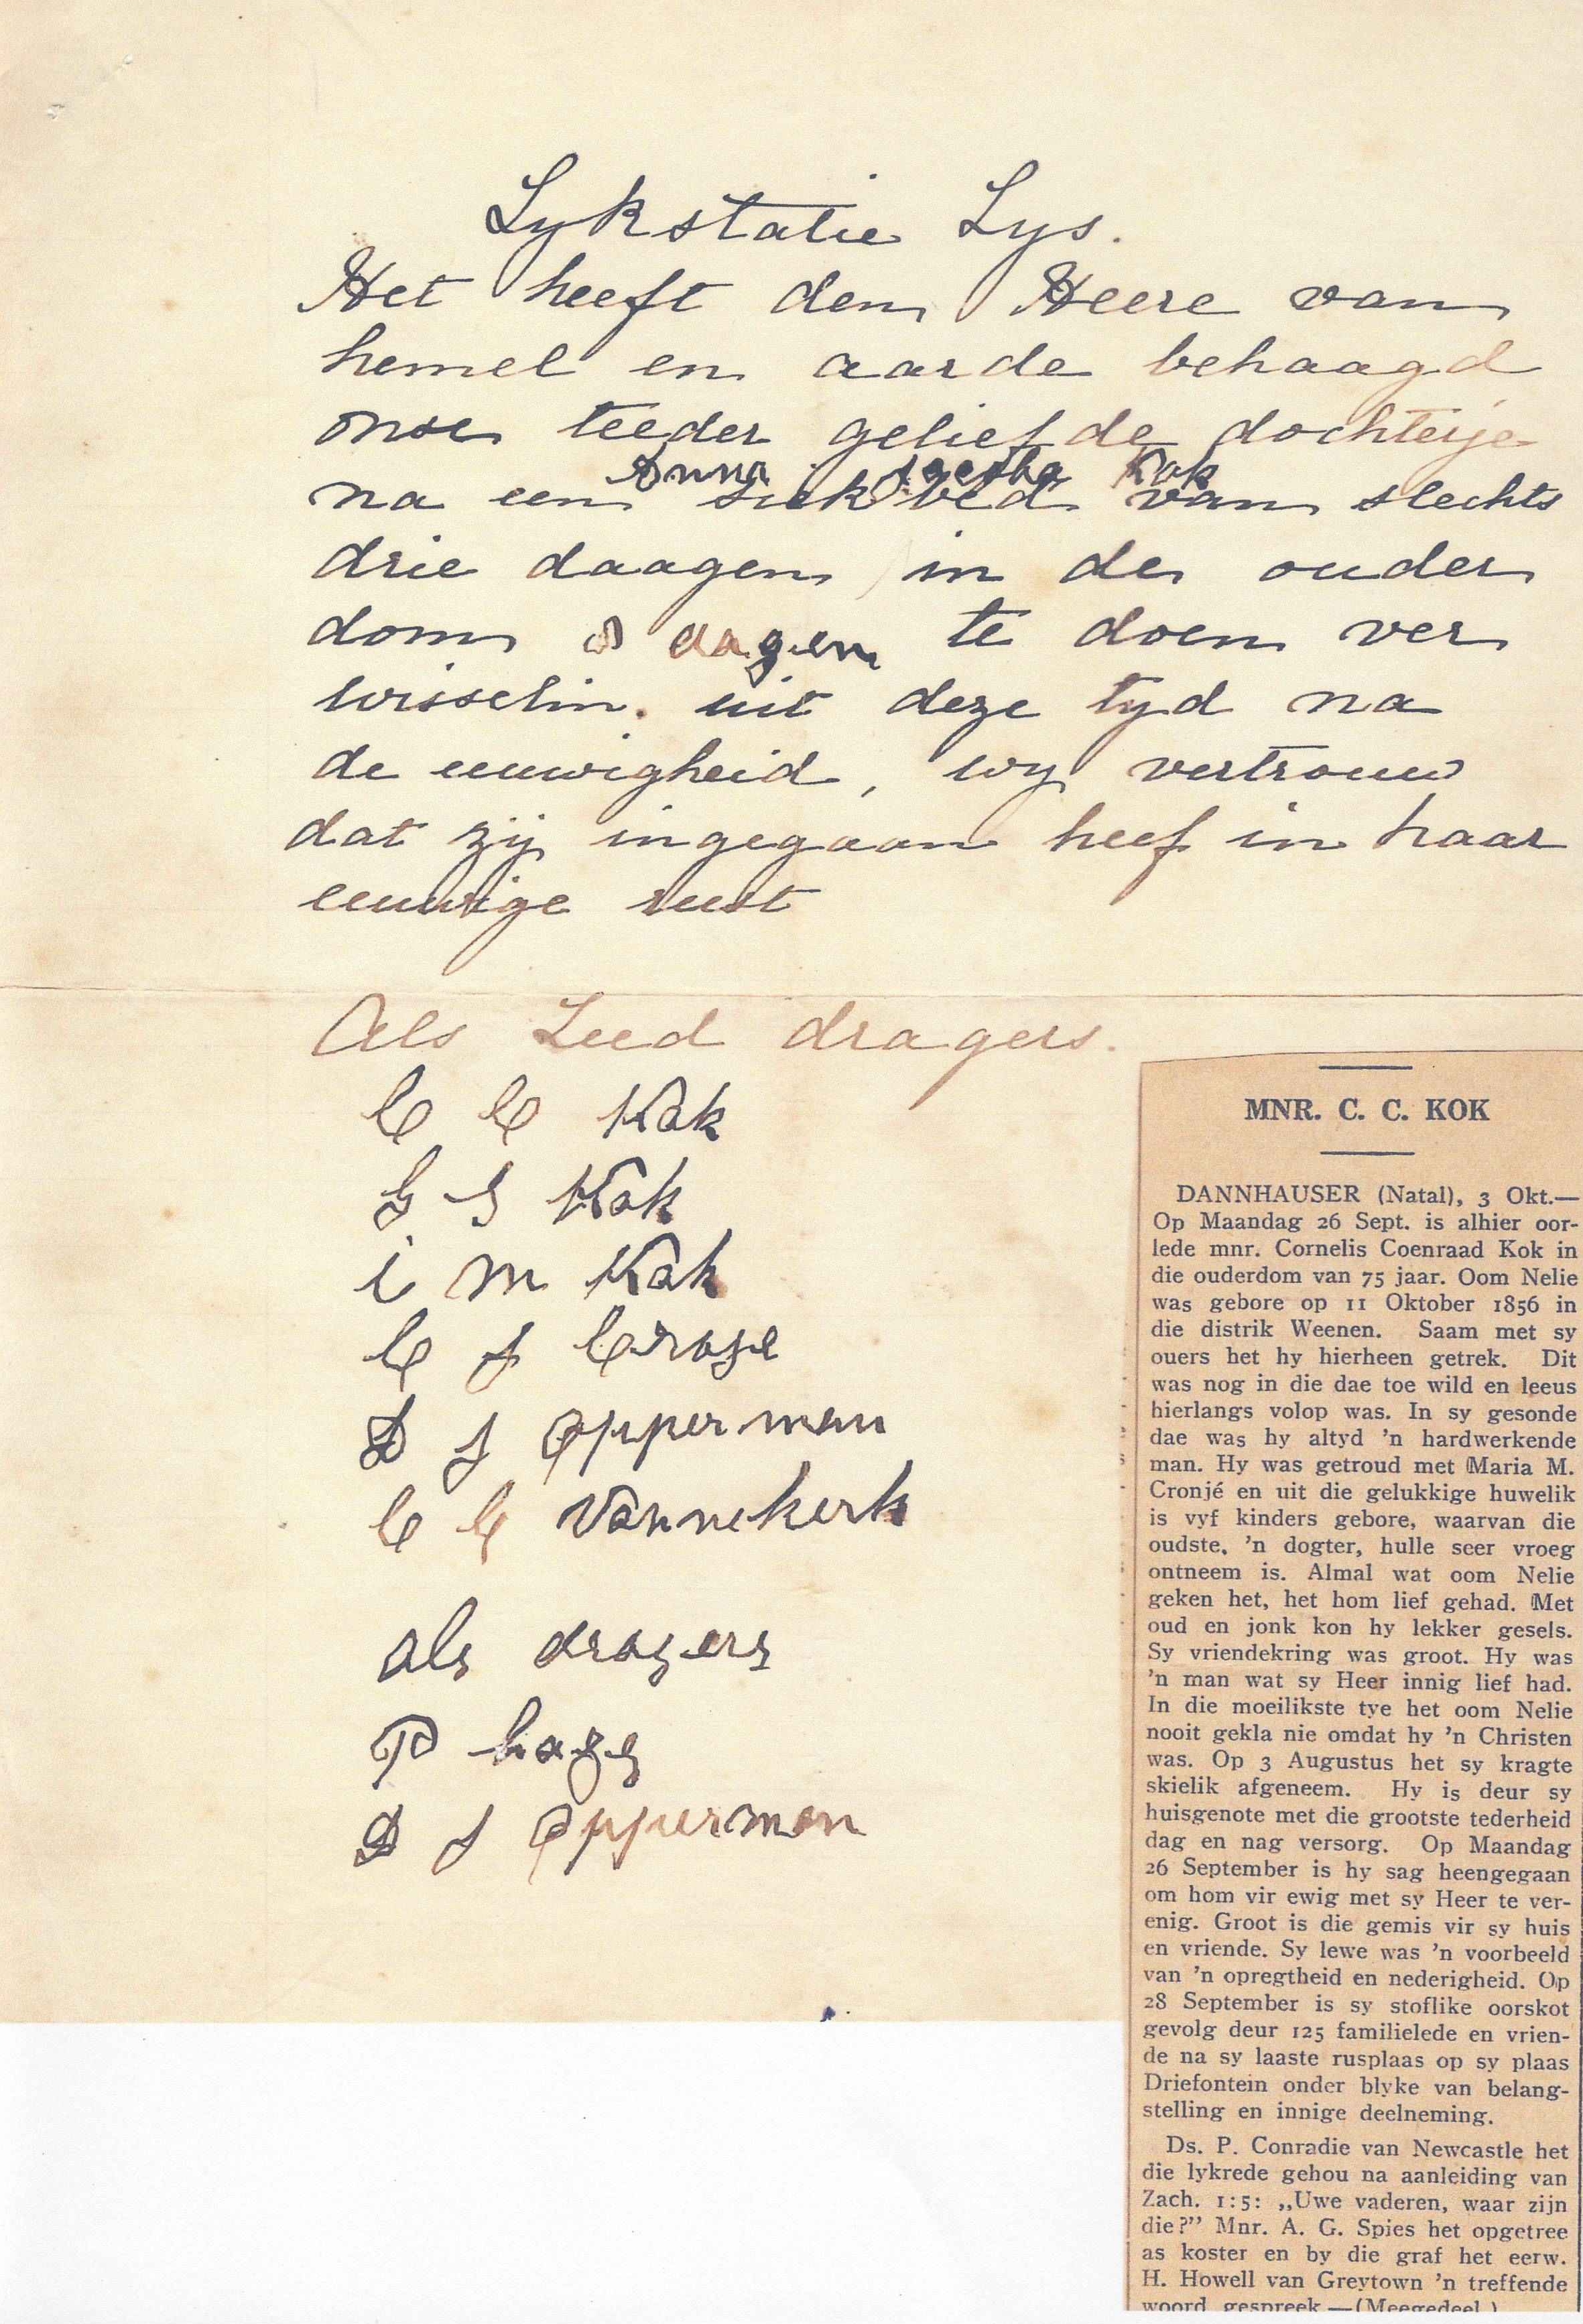 Lykstatie Lys.
Het heeft den Heere van
hemel en aarde behaagd
onse teeder geliefde dochterje
Anna Kok
na een siekbed van slechts
drie daagen in de ouder
dom 8 dagen te doen ver
wisselin. uit deze tyd na
de eeuwigheid, wy vertrouw
dat zij ingegaan heef in haar
eeuwige rust
Als Leed dragers.
C C Kok
G S Kok
i M Kok
C J Cronje
D J Opperman
C C Vannekerk
als dragers
P
D J Opperman
MNR. C. C. KOK
DANNHAUSER (Natal), 3 Okt.—
Op Maandag 26 Sept. is alhier oor-
lede mnr. Cornelis Coenraad Kok in
die ouderdom van 75 jaar. Oom Nelie
was gebore op 11 Oktober 1856 in
die distrik Weenen. Saam met sy
ouers het hy hierheen getrek. Dit
was nog in die dae toe wild en leeus
hierlangs volop was. In sy gesonde
dae was hy altyd ’n hardwerkende
man. Hy was getroud met Maria M.
Cronjé en uit die gelukkige huwelik
is vyf kinders gebore, waarvan die
oudste, ’n dogter, hulle seer vroeg
ontneem is. Almal wat oom Nelie
geken het, het hom lief gehad. Met
oud en jonk kon hy lekker gesels.
Sy vriendekring was groot. Hy was
’n man wat sy Heer innig lief had.
In die moeilikste tye het oom Nelie
nooit gekla nie omdat hy ’n Christen
was. Op 3 Augustus het sy kragte
skielik afgeneem. Hy is deur sy
huisgenote met die grootste tederheid
dag en nag versorg. Op Maandag
26 September is hy sag heengegaan
om hom vir ewig met sy Heer te ver-
enig. Groot is die gemis vir sy huis
en vriende. Sy lewe was ’n voorbeeld
van ’n opregtheid en nederigheid. Op
28 September is sy stoflike oorskot
gevolg deur 125 familielede en vrien-
de na sy laaste rusplaas op sy plaas
Driefontein onder blyke van belang-
stelling en innige deelneming.
Ds. P. Conradie van Newcastle het
die lykrede gehou na aanleiding van
Zach. 1:5: „Uwe vaderen, waar zijn
die?” Mnr. A. G. Spies het opgetree
as koster en by die graf het eerw.
H. Howell van Greytown ’n treffende
woord gespreek.—(Meegedeel.)